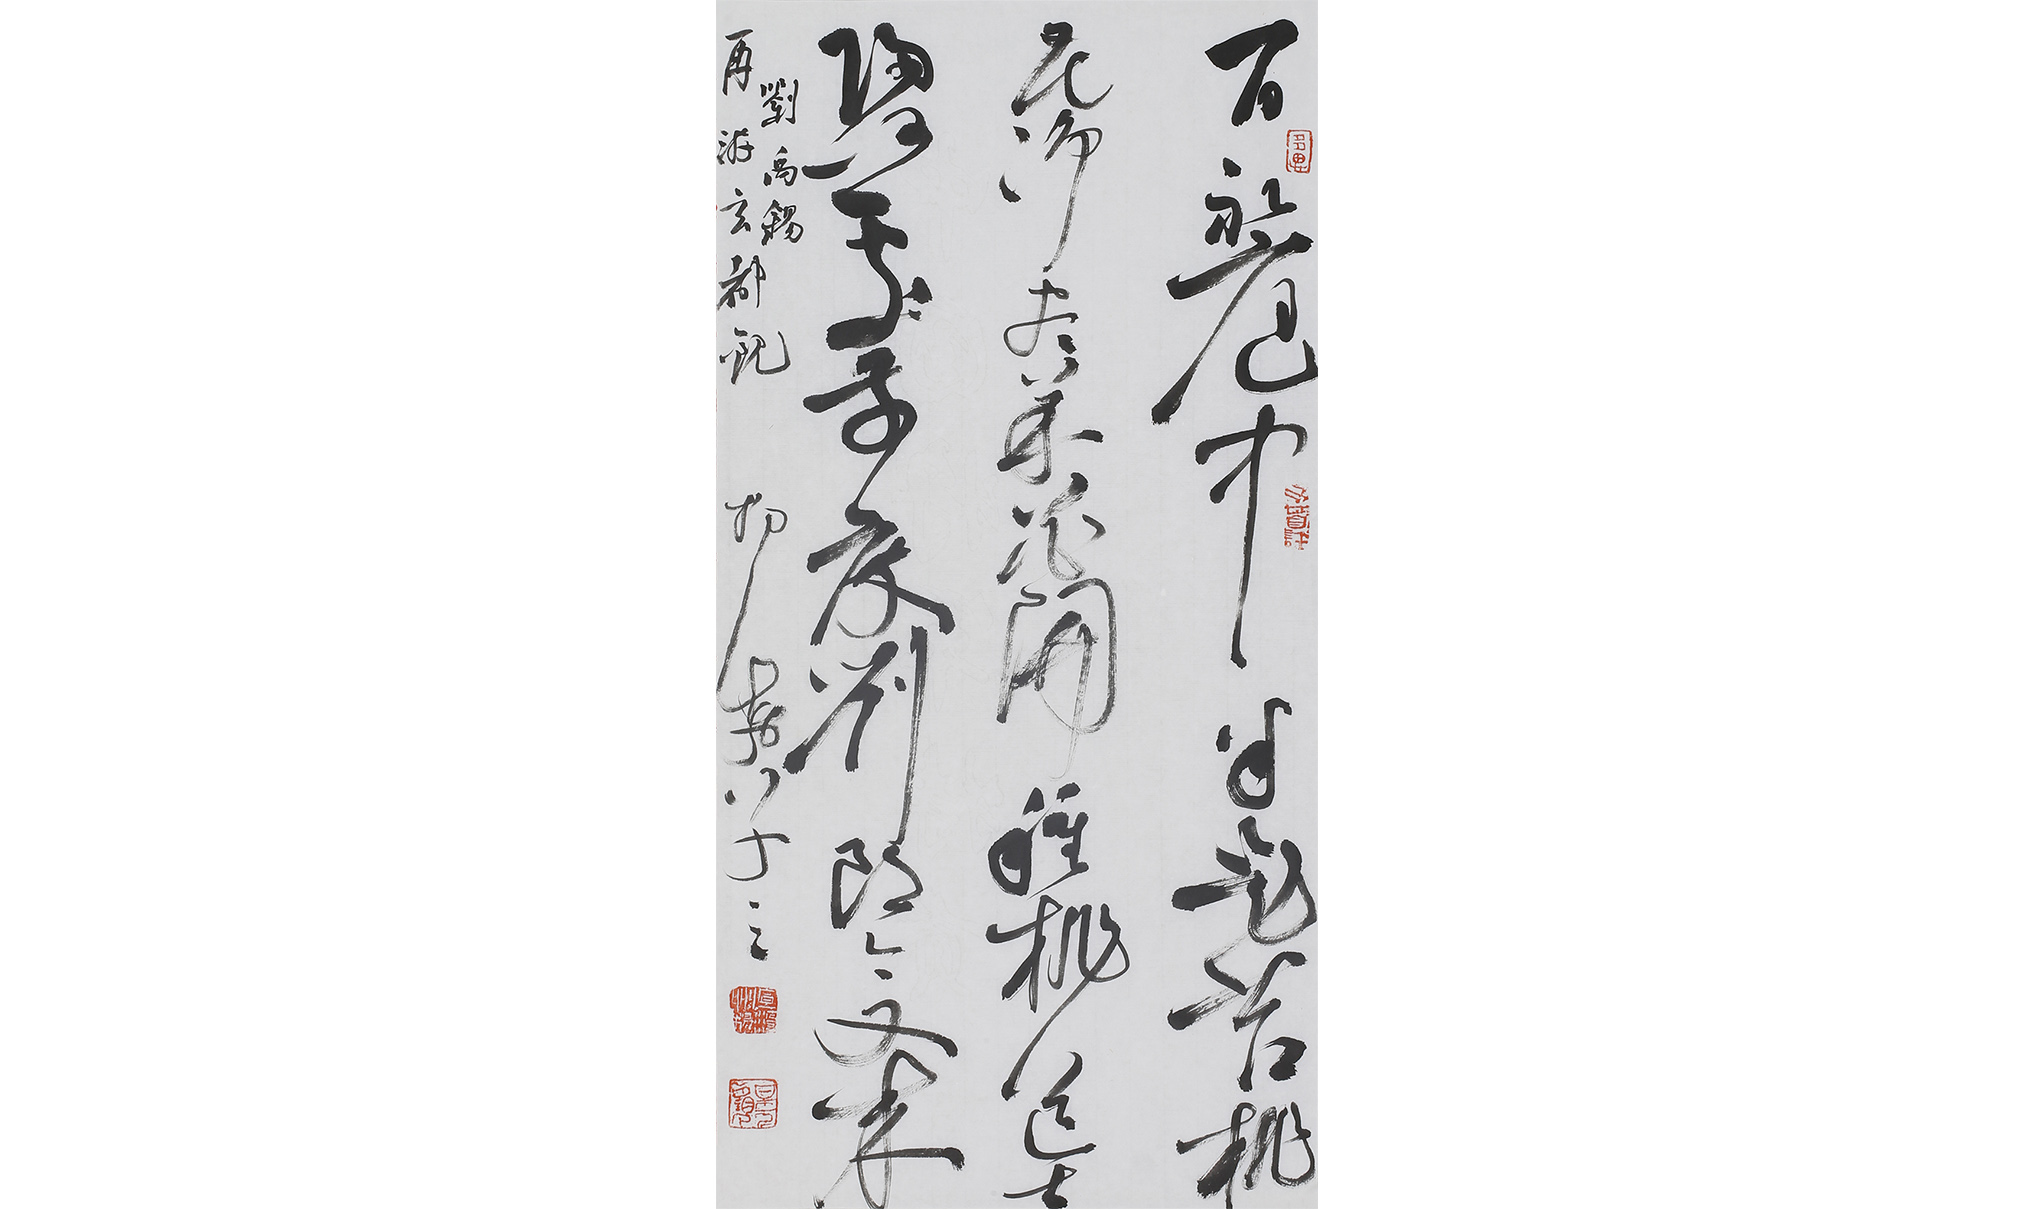 百畝庭中半是苔桃
花淨盡菜花開種桃道士
歸何處前度劉郎今又來
劉禹錫
再游玄都觀